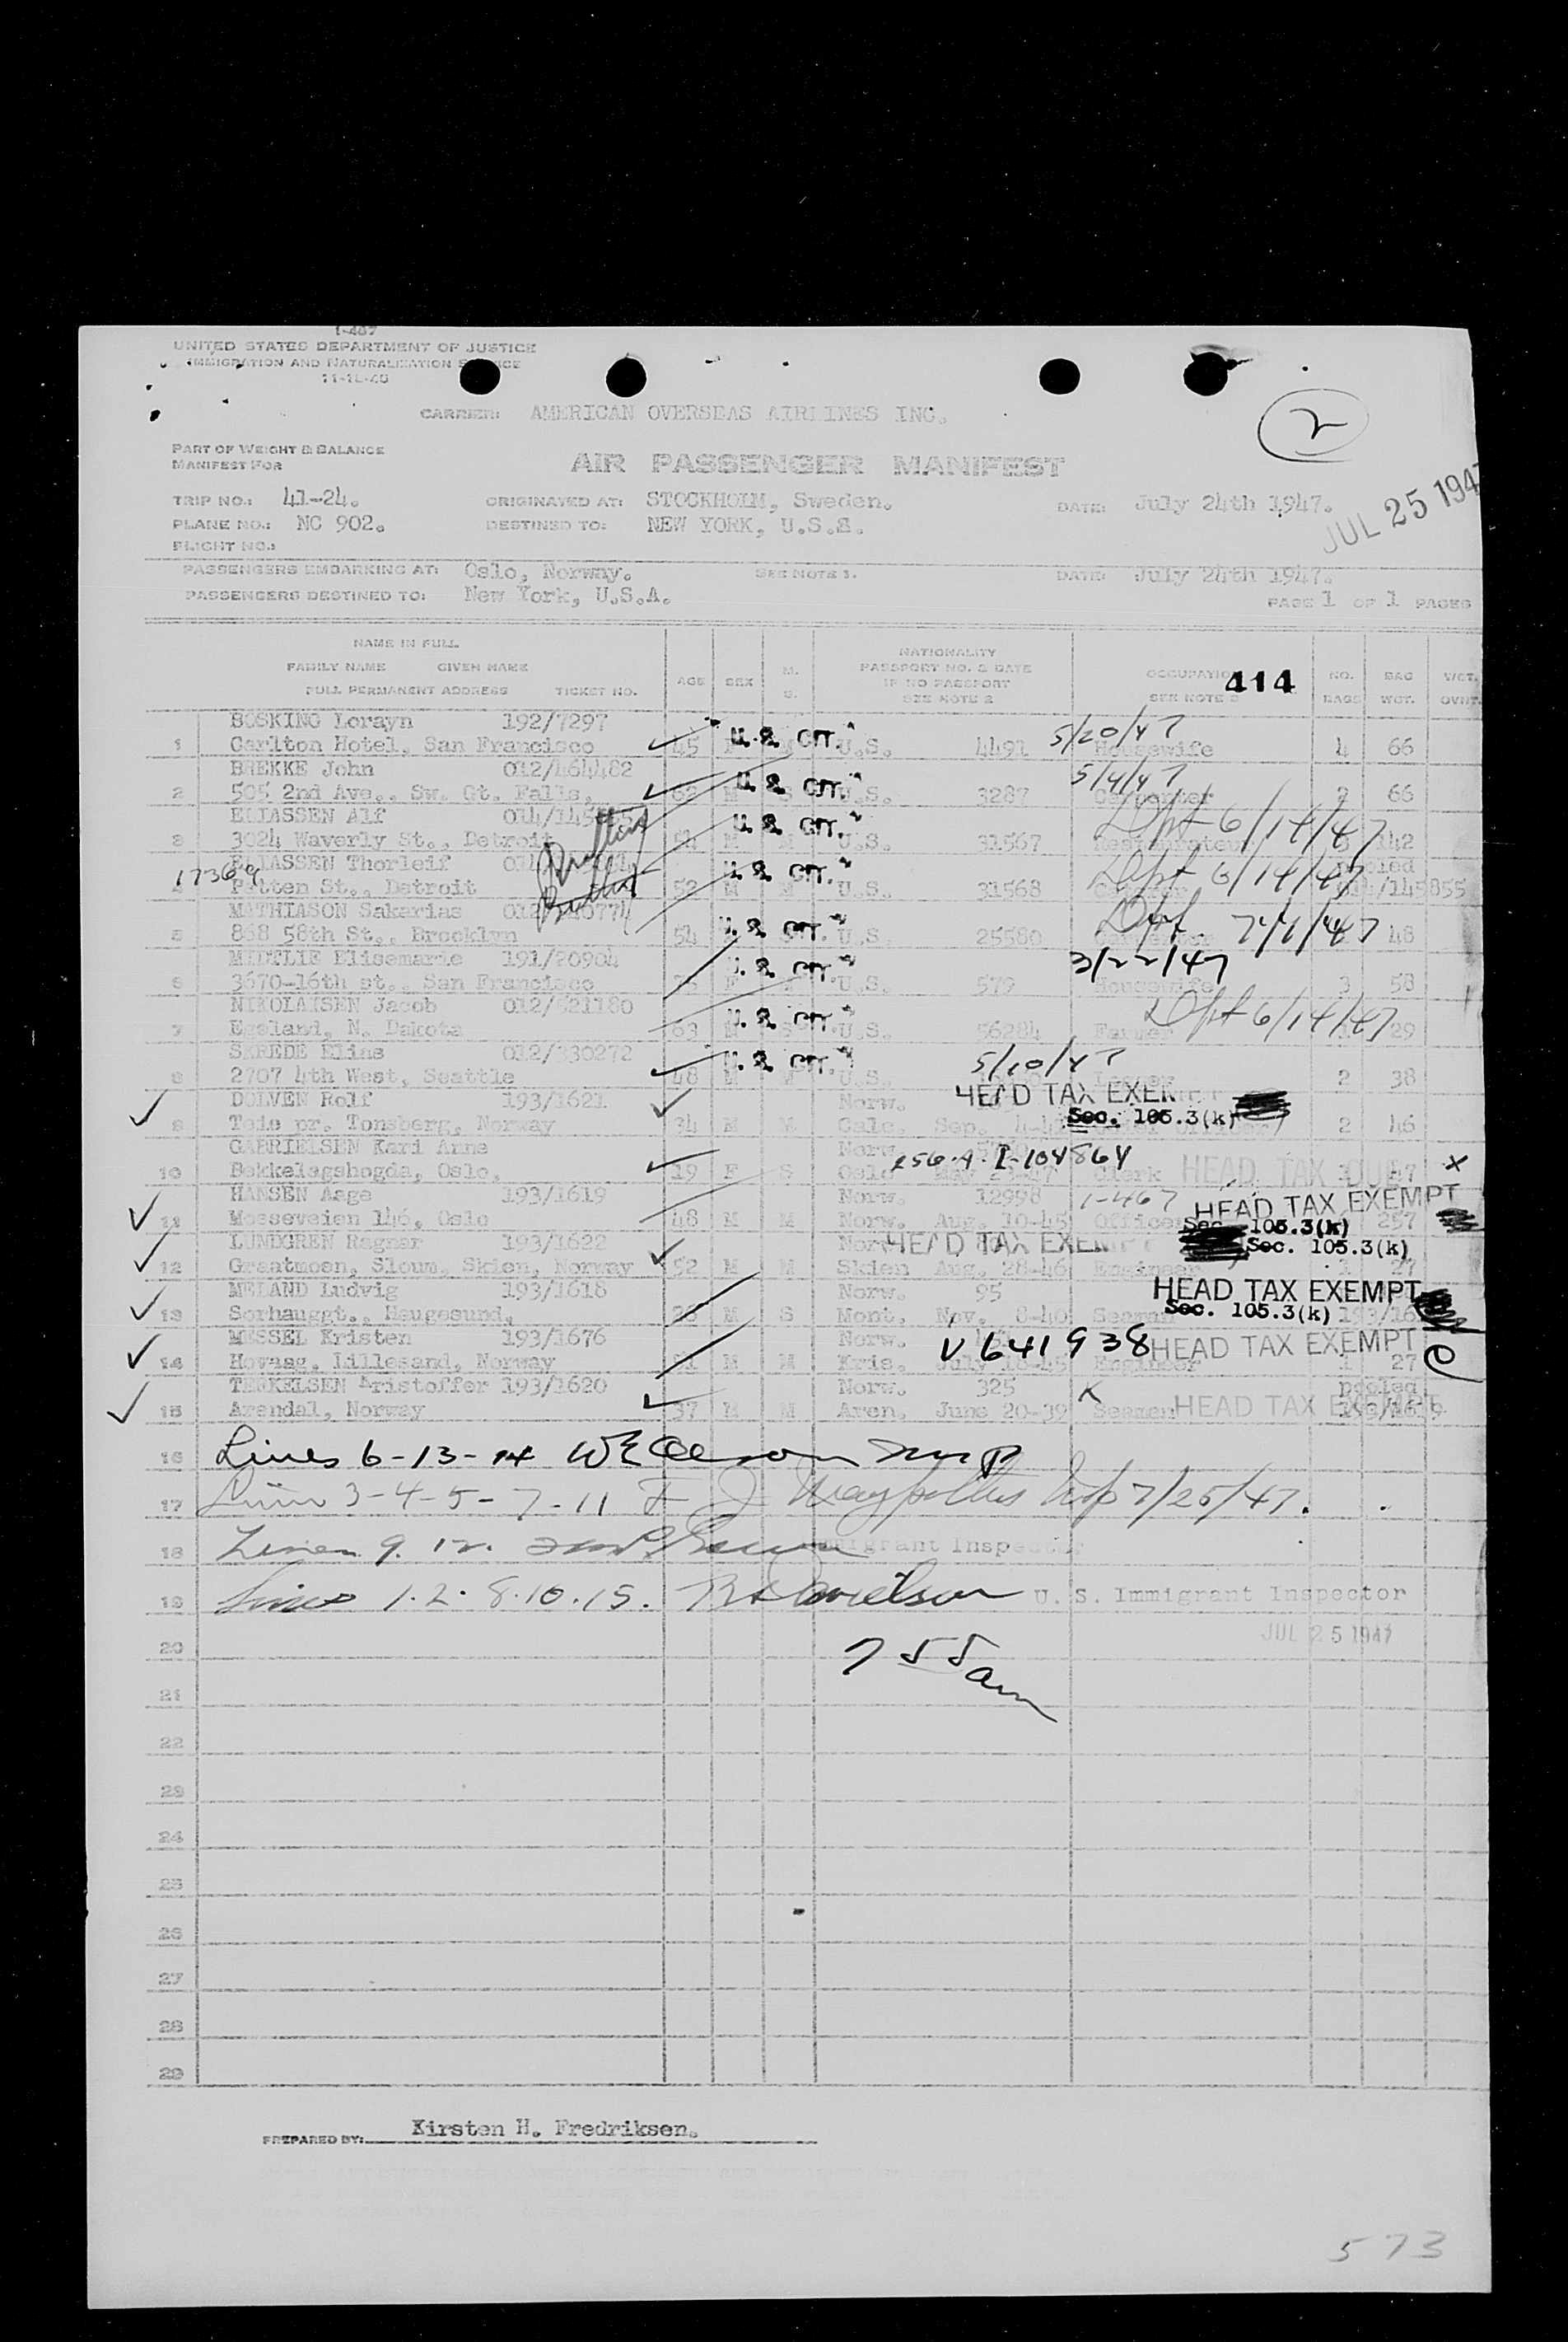 I-467
UNITED STATES DEPARTMENT OF JUSTICE
IMMIGRATION AND NATURALIZATION
CARRIER: AMERICAN OVERSEAS AIRLINES INC.
2
PART OF WEIGHT & BALANCE
MANIFEST FOR
AIR PASSENGER MANIFEST
TRIP NO.: 41-24. ORIGINATED AT: STOCKHOLM, Sweden. DATE: July 24th 1947.
JUL 25 194
PLANE NO.: NC 902. DESTINED TO: NEW YORK, U.S.A.
FLIGHT NO.:
PASSENGERS EMBARKING AT: Oslo, Norway. SEE NOTE 1. DATE: July 24th 1947.
PASSENGERS DESTINED TO: New York, U.S.A. PAGE 1 OF 1 PAGES
NAME IN FULL
FAMILY NAME GIVEN NAME
FULL PERMANENT ADDRESS TICKET NO.
AGE SEX M. S.
NATIONALITY
PASSPORT NO. & DATE
IF NO PASSPORT
SEE NOTE 2
OCCUPATION 414
SEE NOTE
NO. BAGS BAG WGT. WGT.
BOSKING Lorayn 192/7297
1 Carlton Hotel, San Francisco 45 U.S. 4491 5/20/47 Housewife 4 66
BREKKE John 012/464482
2 505 2nd Ave., Sw. Gt. Falls, 62 M U.S. 3287 5/4/47 66
ELIASSEN Alf
3 3024 Waverly St., Detroit M M U.S. 31567 Dept 6/14/47 142
ELIASSEN Thorleif
17369
4 Patten St., Detroit 52 M M U.S. 31568 Dept 6/14/47 /145855
MATHIASON Sakarias
5 868 58th St., Brooklyn 54 U.S. 25580 Dept. 7/1/47 48
MIDTLIE Elisemarie 191/20904
6 3670-16th st., San Francisco F U.S. 579 3/22/47 Housewife 3 58
NIKOLAISEN Jacob 012/521180
7 Egeland, N. Dakota 63 U.S. 56284 Farmer Dept 6/14/47 29
SKREDE Elias 012/330272
8 2707 4th West, Seattle 48 M M U.S. 5/20/47 2 38
DOLVEN Rolf 193/1621 Norw. HEAD TAX EXEM
9 Teie pr. Tonsberg, Norway 34 M M Sec. 105.3(k) 2 46
GABRIELSEN Kari Anne Norw.
10 Bekkelagshogda, Oslo, 19 F S Oslo Clerk HEAD TAX DUE
HANSEN Aage 193/1619 Norw. 12998 I-467 HEAD TAX EXEMPT
11 Mosseveien 146, Oslo 48 M M Norw. Aug. 10-45 Officer Sec. 105.3(k) 257
LUNDGREN Ragnar 193/1622 HEAD TAX EXEM Sec. 105.3(k)
12 Graatmoen, Sloum, Skien, Norway 52 M M Skien Aug. 28-46 Engineer 1 27
MELAND Ludvig 193/1618 Norw. 95 HEAD TAX EXEMPT
13 Sorhauggt., Haugesund, M S Mont. Nov. 8-40 Seaman Sec. 105.3(k)
MESSEL Kristen 193/1676 Norw. V641938 HEAD TAX EXEMPT
14 Hovaag, Lillesand, Norway M M Kris. Engineer 1 27
193/1620 Norw. 325 pooled
15 Arendal, Norway 37 M M Aren. June 20-39 Seaman HEAD TAX EXEMPT
U. S. CIT.
U. S. CIT.
U. S. CIT.
U. S. CIT.
U. S. CIT.
U. S. CIT.
U. S. CIT.
U. S. CIT.
16 Lines 6-13-14
17 Lines 3-4-5-7-11 7/25/47.
18 Lines 9. 12. Immigrant Inspector
19 Lines 1.2.8.10.15. U. S. Immigrant Inspector
JUL 25 1947
20
755 am
21
22
23
24
25
26
27
28
29
PREPARED BY: Kirsten H. Fredriksen.
573